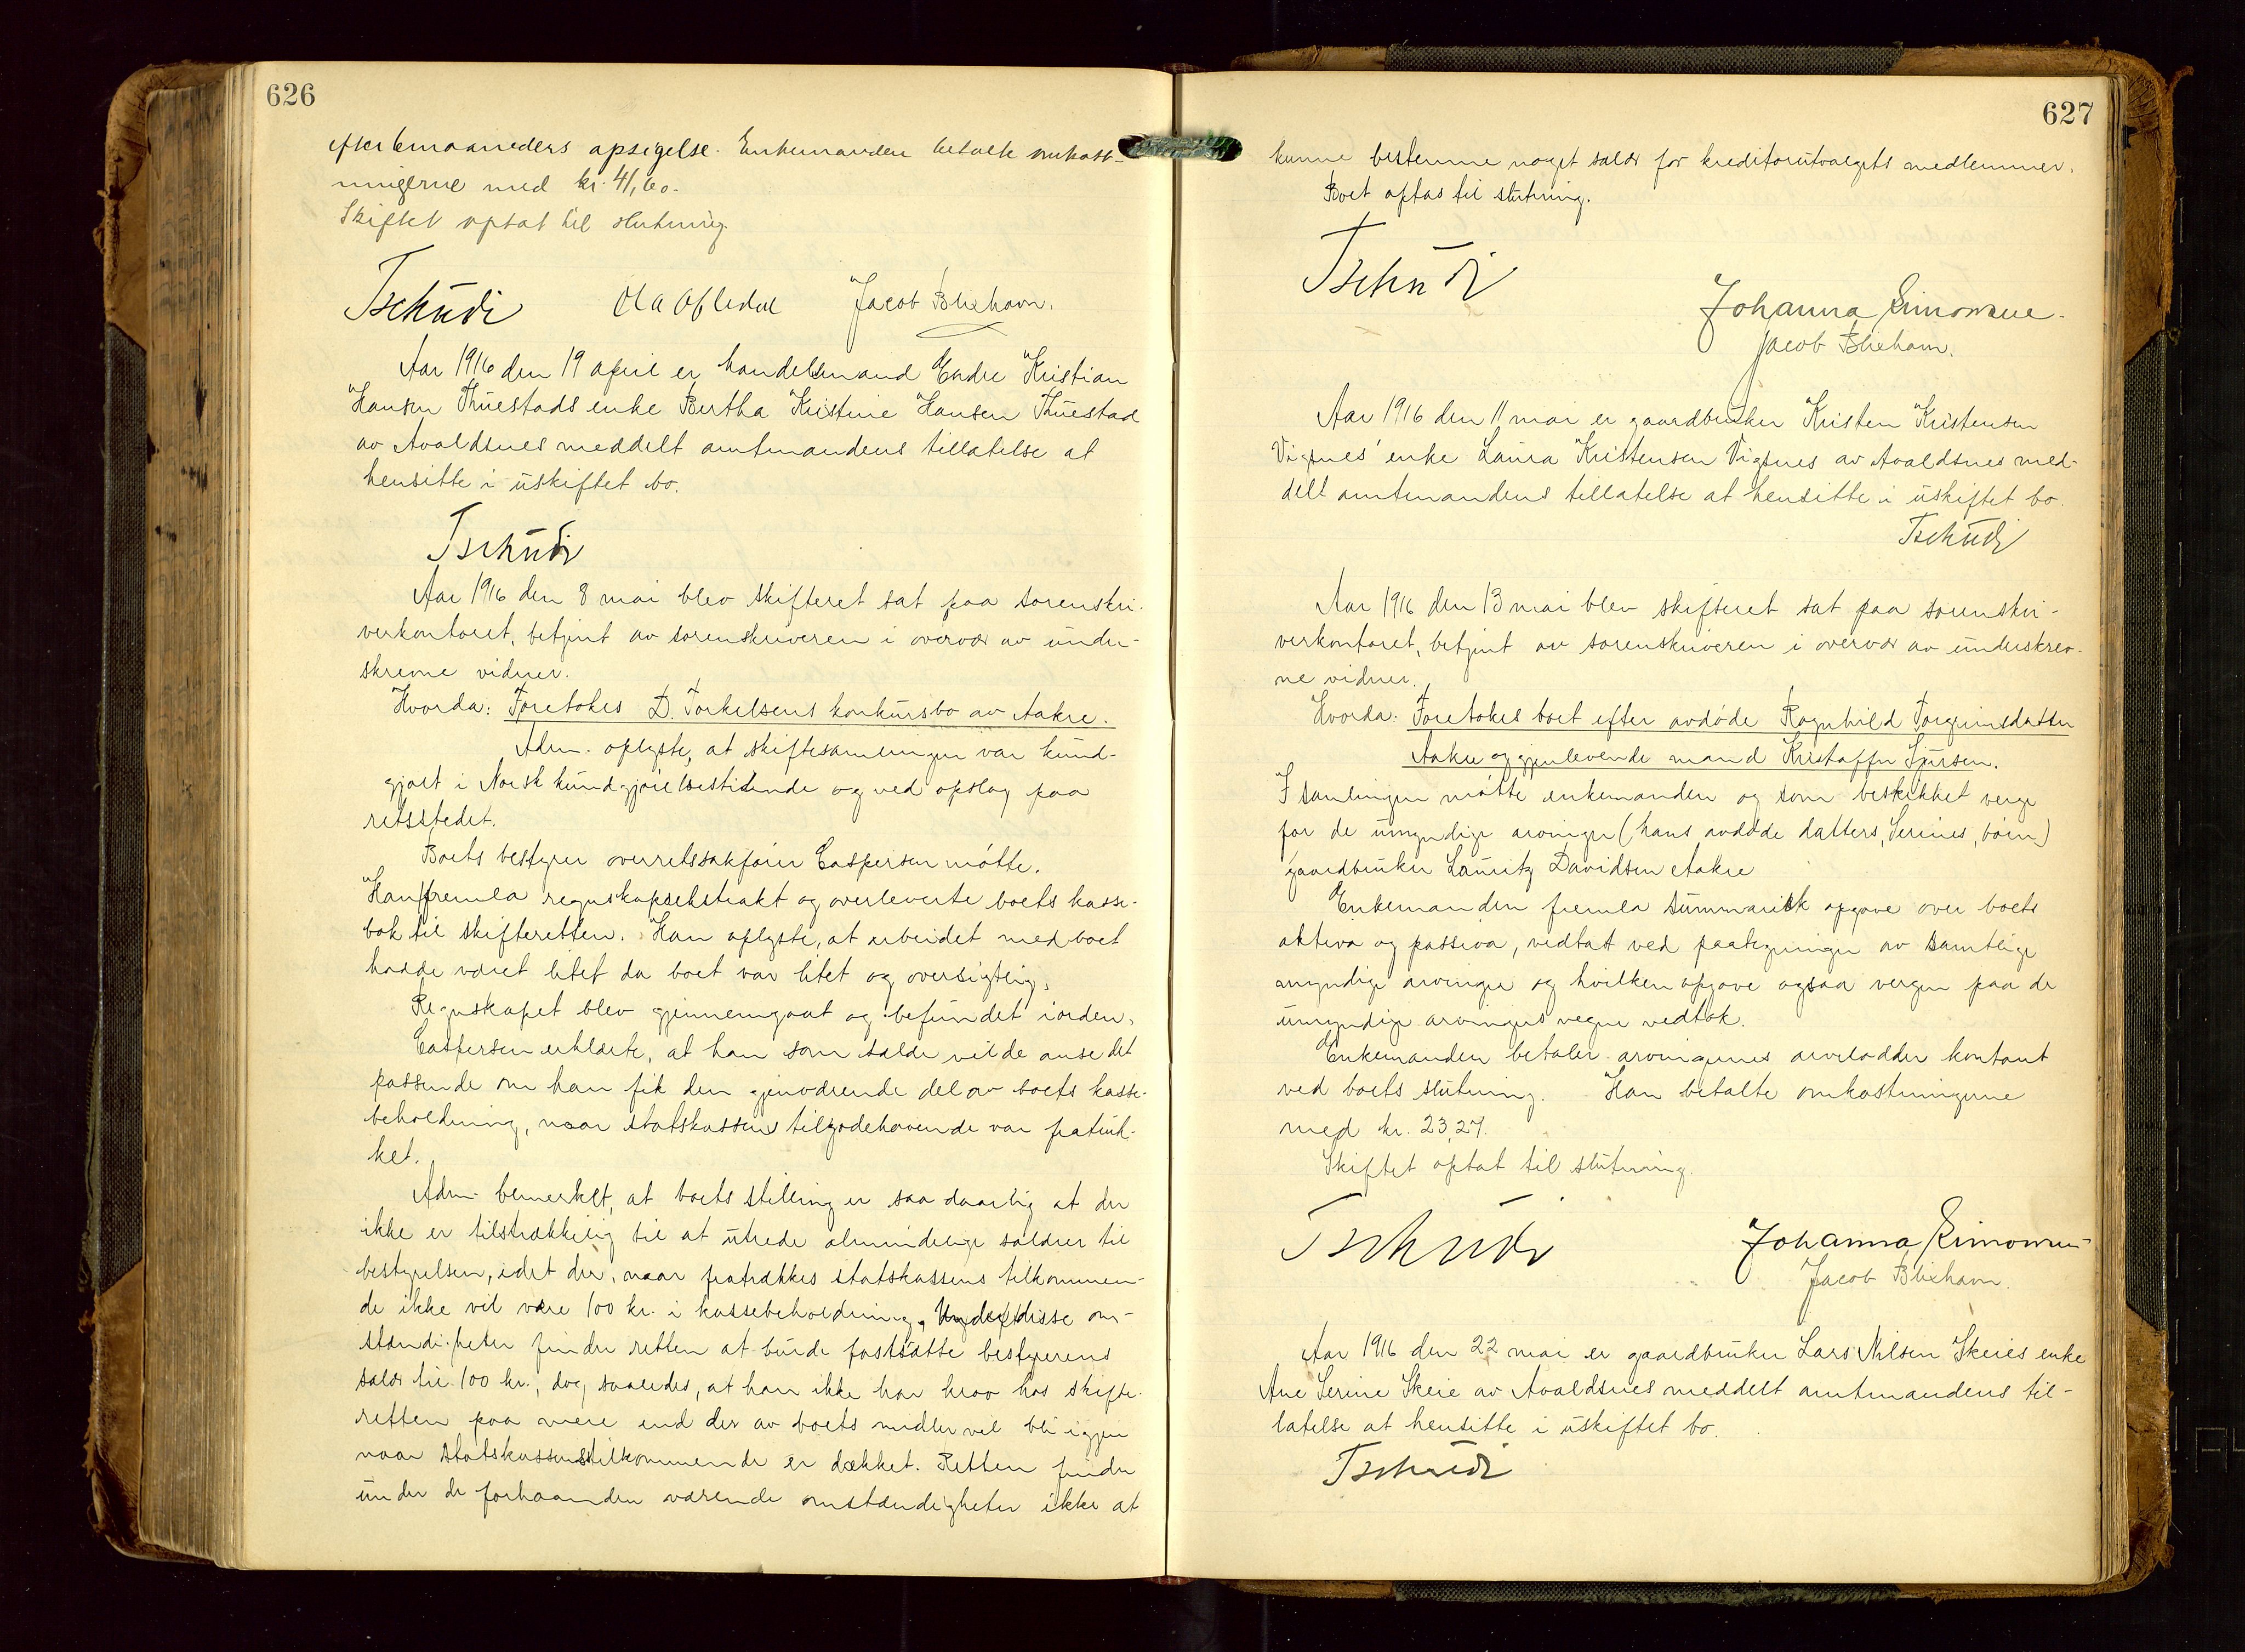 626
efter 6 maaneders opsigelse. Enkemanden betalte omkost-
ningerne med kr. 41,60.
Skiftet optat til slutning.
Tschudi Ola Jacob Blixhavn.
Aar 1916 den 19 april er handelsmand Endre Kristian
Hansen Thuestads enke Bertha Kristine Hansen Thuestad
av Avaldsnes meddelt amtmandens tillatelse at
hensitte i uskiftet bo.
Tschudi
Aar 1916 den 8 mai blev skifteret sat paa sorenskri-
verkontoret, betjent av sorenskriveren i overvær av under-
skrevne vidner.
Hvorda: Foretokes D. Torkelsens konkursbo av Aakre.
Adm. oplyste, at skiftesamlingen var kund-
gjort i Norsk kundgjørelsestidende og ved opslag paa
retsstedet.
Boets bestyrer overretssakfører Caspersen møtte.
Han fremla regnskapsekstrakt og overleverte boets kasse-
bok til skifteretten. Han oplyste, at arbeidet med boet
hadde været litet da boet var litet og oversigtlig.
Regnskapet blev gjennemgaat og befundet i orden.
Caspersen erklærte, at han som salær vilde anse det
passende om han fik den gjenværende del av boets kasse-
beholdning, naar statskassens tilgodehavende var fratruk-
ket.
Adm. bemerket, at boets stilling er saa daarlig at der
ikke er tilstrækkelig til at utrede almindelige salærer til
bestyrelsen, idet der, naar fratrækkes statskassens tilkommen-
de ikke vil være 100 kr. i kassebeholdning. Under disse om-
stændigheter finder retten at burde fastsætte bestyrerens
salær til 100 kr., dog saaledes, at han ikke har krav hos skifte-
retten paa mere end der av boets midler vil bli igjen
naar statskassens tilkommende er dækket. Retten finder
under de forhaanden værende omstændigheter ikke at
627
kunne bestemme noget salær for kreditorutvalgets medlemmer.
Boet optas til slutning.
Tschudi
Johanna Simonsen.
Jacob Blixhavn.
Aar 1916 den 11 mai er gaardbruker Kristen Kristensen
Vigsnes' enke Laura Kristensen Vigsnes av Avaldsnes med-
delt amtmandens tillatelse at hensitte i uskiftet bo.
Tschudi
Aar 1916 den 13 mai blev skifteret sat paa sorenskri-
verkontoret, betjent av sorenskriveren i overvær av underskrev-
ne vidner.
Hvorda: Foretokes boet efter avdøde Ragnhild Torgeirsdatter
Aakre og gjenlevende mand Kristoffer Sjursen.
I samlingen møtte enkemanden og som beskikket verge
for de umyndige arvinger (hans avdøde datters, Serines, børn)
gaardbruker Lauritz Davidsen Aakre
Enkemanden fremla summarisk opgave over boets
aktiva og passiva, vedtat ved paategninger av samtlige
myndige arvinger og hvilken opgave ogsaa vergen paa de
umyndige arvingers vegne vedtok.
Enkemanden betaler arvingernes arvelodder kontant
ved boets slutning. Han betalte omkostningerne
med kr. 23,27.
Skiftet optat til slutning.
Tschudi
Johanna Simonsen
Jacob Blixhavn.
Aar 1916 den 22 mai er gaardbruker Lars Nilsen Skeies enke
Ane Serine Skeie av Avaldsnes meddelt amtmandens til-
latelse at hensitte i uskiftet bo.
Tschudi